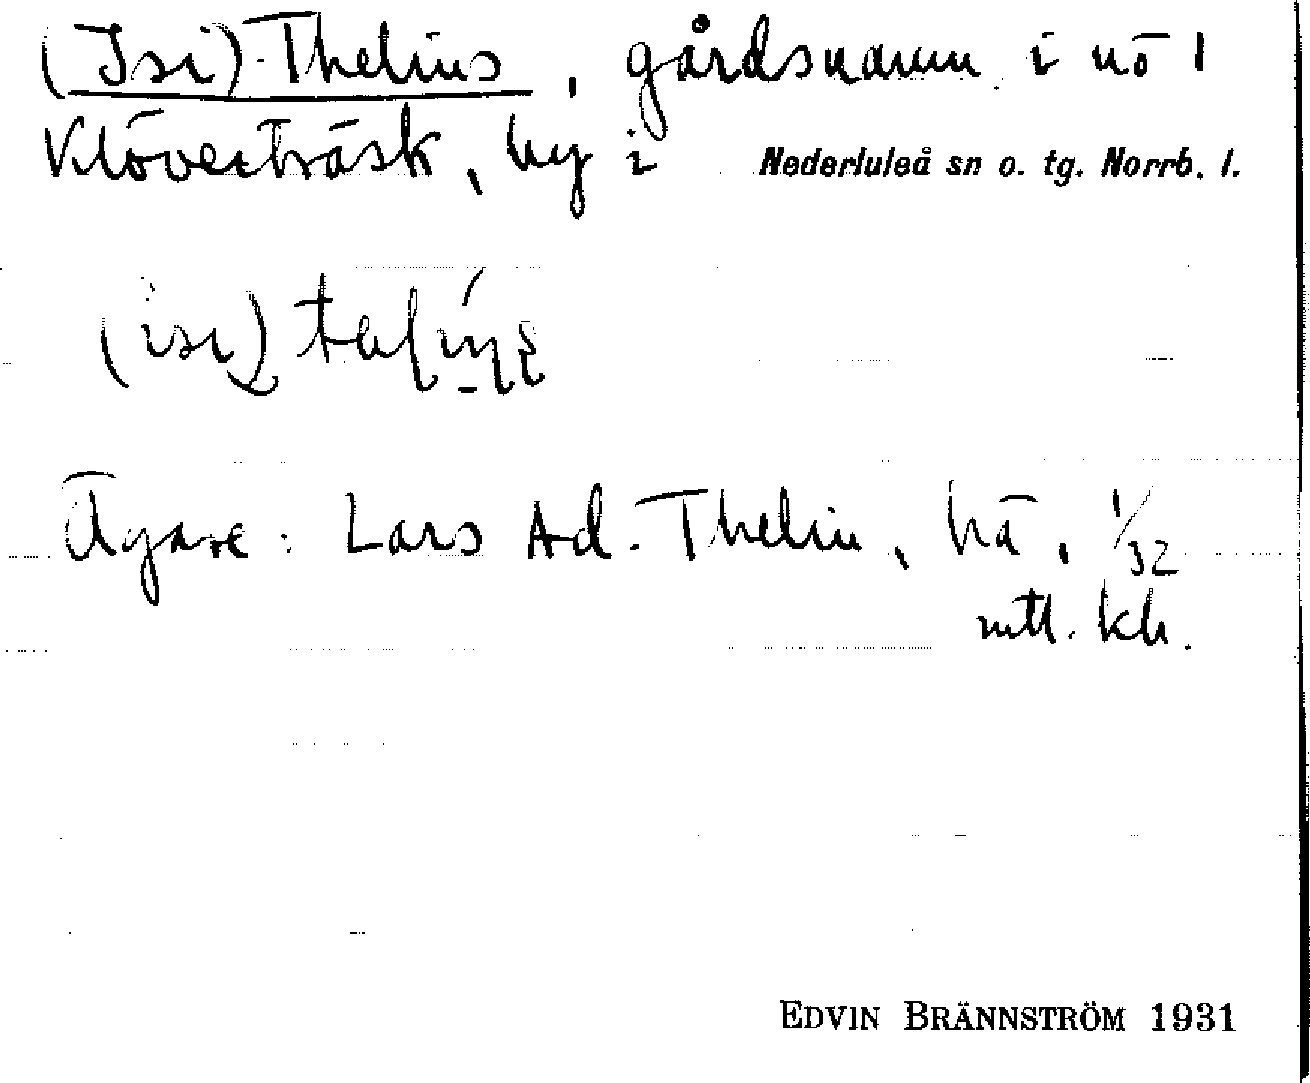 (Isi)-Thelins, gårdsnamn i nö 1
Klöverträsk, by i Nederluleå sn o. tg. Norrb. l.
(isi)
Ägare: Lars Ad. Thelin, hä, 1/32
mtl. kh.
EDVIN BRÄNNSTRÖM 1931